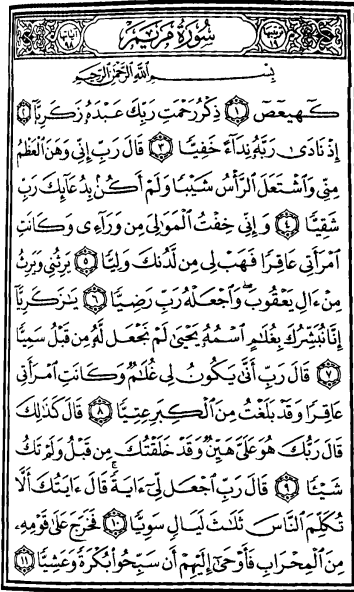 ترتيبها ١٩ سُورَةُ مَرْيَمَ آياتها ٩٨
بِسْمِ ٱللَّهِ ٱلرَّحْمَٰنِ ٱلرَّحِيمِ
كٓهيعٓصٓ ۝١ ذِكْرُ رَحْمَتِ رَبِّكَ عَبْدَهُۥ زَكَرِيَّآ ۝٢
إِذْ نَادَىٰ رَبَّهُۥ نِدَآءً خَفِيًّا ۝٣ قَالَ رَبِّ إِنِّى وَهَنَ ٱلْعَظْمُ
مِنِّى وَٱشْتَعَلَ ٱلرَّأْسُ شَيْبًا وَلَمْ أَكُنۢ بِدُعَآئِكَ رَبِّ
شَقِيًّا ۝٤ وَإِنِّى خِفْتُ ٱلْمَوَٰلِىَ مِن وَرَآءِى وَكَانَتِ
ٱمْرَأَتِى عَاقِرًا فَهَبْ لِى مِن لَّدُنكَ وَلِيًّا ۝٥ يَرِثُنِى وَيَرِثُ
مِنْ ءَالِ يَعْقُوبَ ۖ وَٱجْعَلْهُ رَبِّ رَضِيًّا ۝٦ يَٰزَكَرِيَّآ
إِنَّا نُبَشِّرُكَ بِغُلَٰمٍ ٱسْمُهُۥ يَحْيَىٰ لَمْ نَجْعَل لَّهُۥ مِن قَبْلُ سَمِيًّا
۝٧ قَالَ رَبِّ أَنَّىٰ يَكُونُ لِى غُلَٰمٌ وَكَانَتِ ٱمْرَأَتِى
عَاقِرًا وَقَدْ بَلَغْتُ مِنَ ٱلْكِبَرِ عِتِيًّا ۝٨ قَالَ كَذَٰلِكَ
قَالَ رَبُّكَ هُوَ عَلَىَّ هَيِّنٌ وَقَدْ خَلَقْتُكَ مِن قَبْلُ وَلَمْ تَكُ
شَيْـًٔا ۝٩ قَالَ رَبِّ ٱجْعَل لِّىٓ ءَايَةً ۚ قَالَ ءَايَتُكَ أَلَّا
تُكَلِّمَ ٱلنَّاسَ ثَلَٰثَ لَيَالٍ سَوِيًّا ۝١٠ فَخَرَجَ عَلَىٰ قَوْمِهِۦ
مِنَ ٱلْمِحْرَابِ فَأَوْحَىٰٓ إِلَيْهِمْ أَن سَبِّحُوا۟ بُكْرَةً وَعَشِيًّا ۝١١